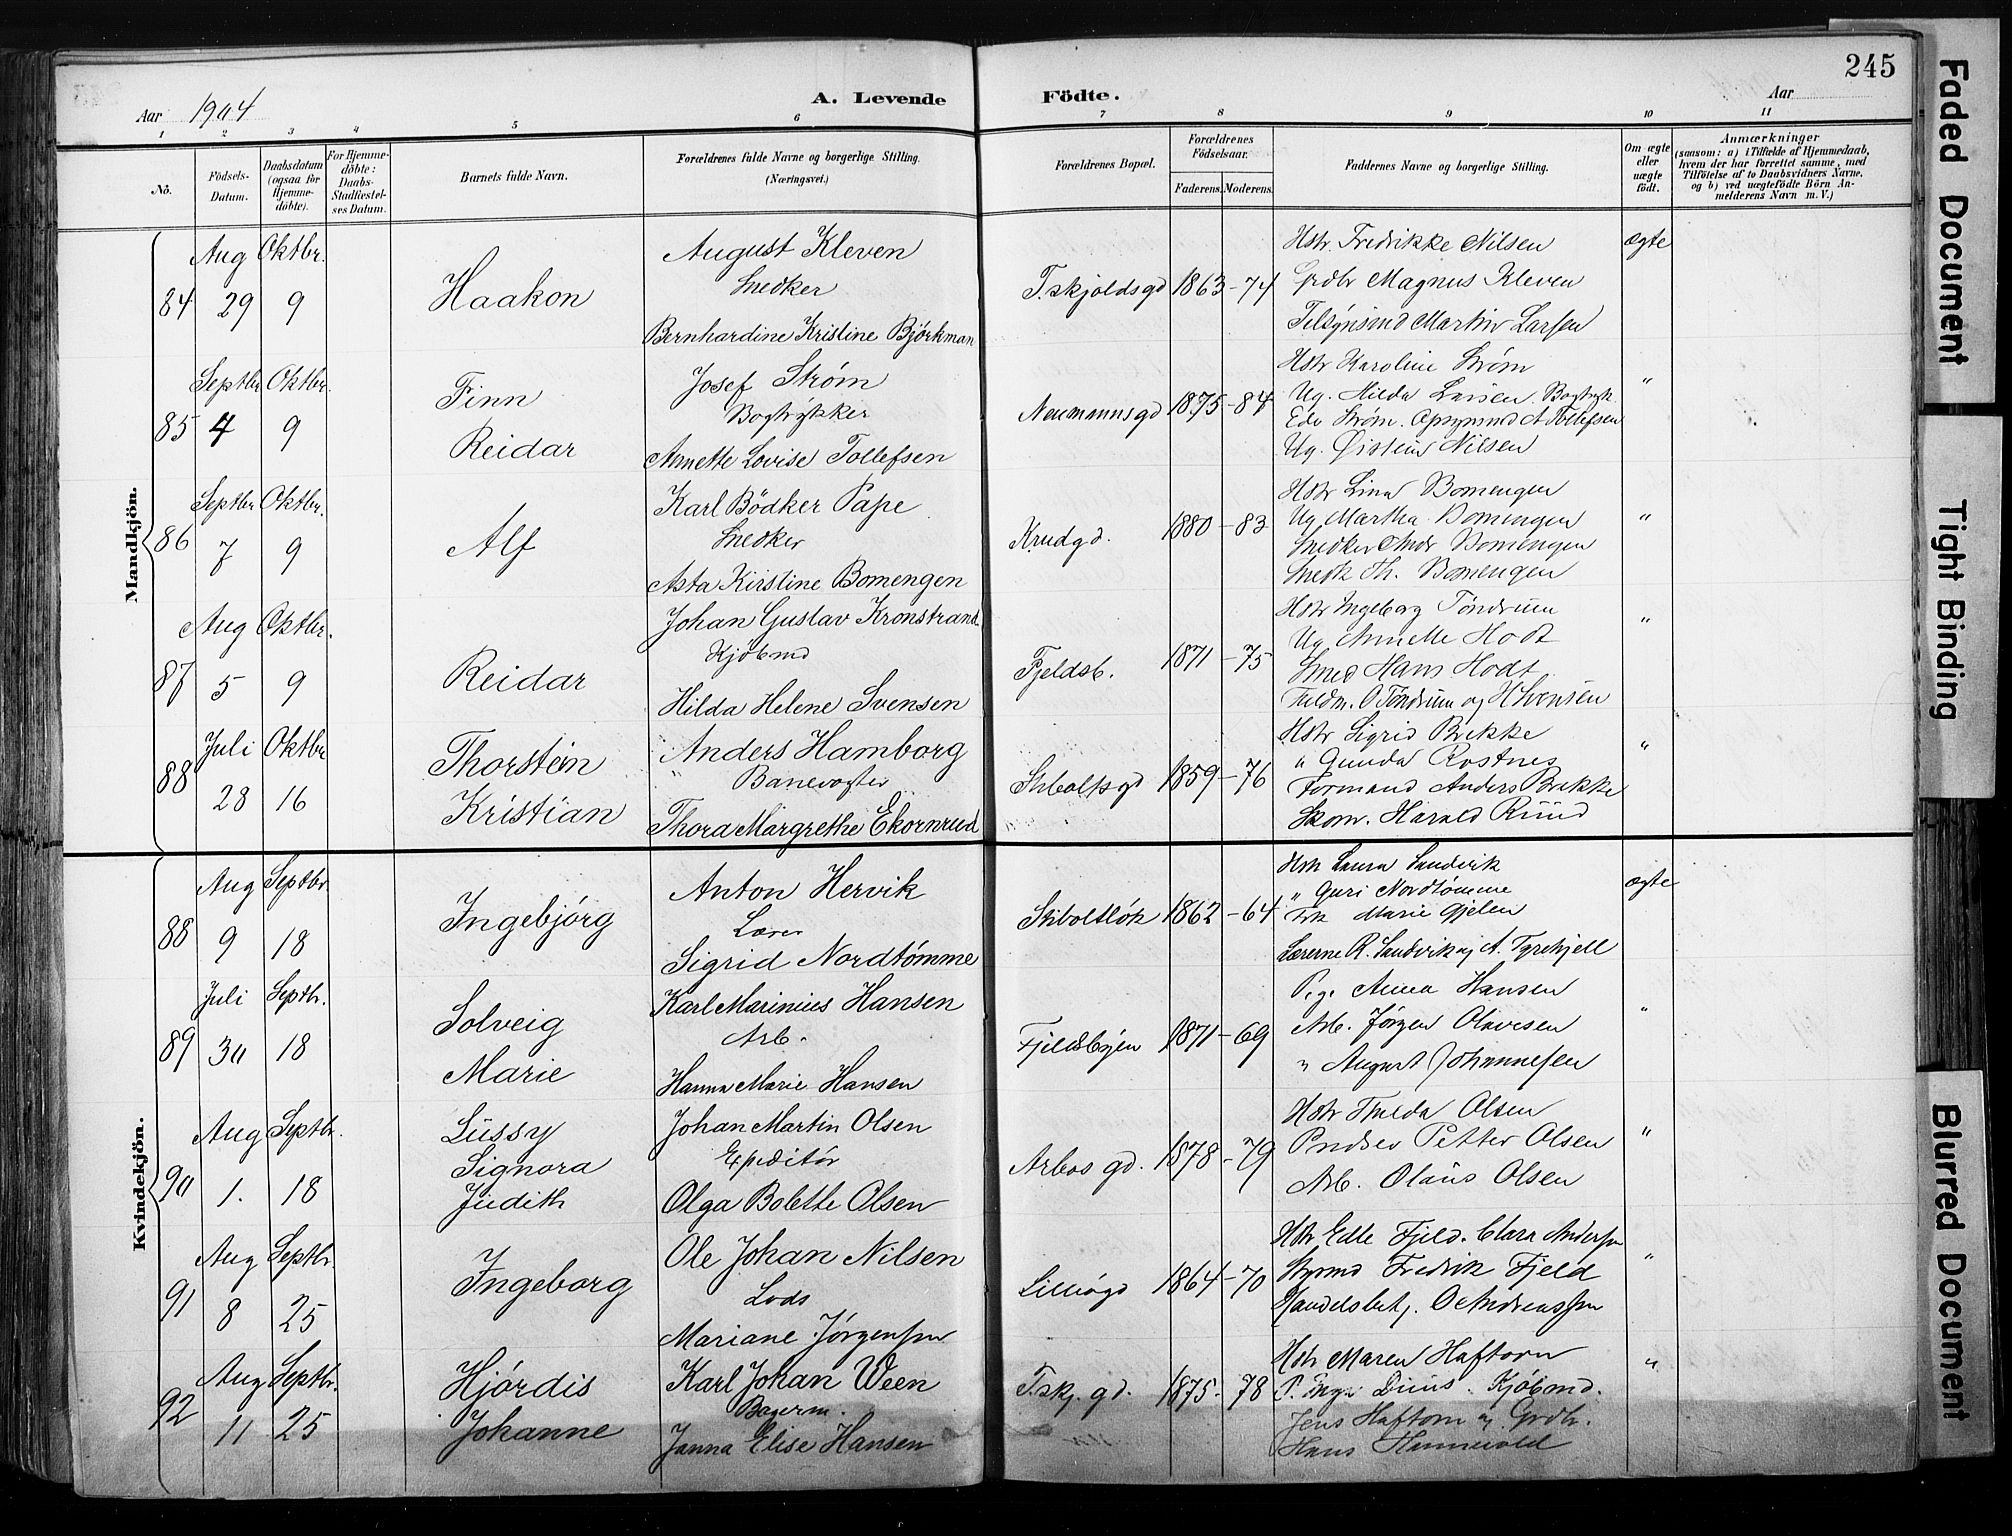 245
Aar 1904
A. Levende
Födte.
Aar
1 2 3 4 5 6 7 8 9 10 11
Nô.
Födsels-Datum.
Daabsdatum (ogsaa for Hjemme-döbte).
For Hjemme-döbte: Daabs-Stadfæstel-ses Datum.
Barnets fulde Navn.
Forældrenes fulde Navne og borgerlige Stilling. (Næringsvei.)
Forældrenes Bopæl.
Forældrenes Födselsaar.
Faderens. Moderens.
Faddernes Navne og borgerlige Stilling.
Om ægte eller uægte födt.
Anmærkninger
(saasom: a) i Tilfælde af Hjemmedaab, hvem der har forrettet samme, med Tilföielse af to Daabsvidners Navne, og b) ved uægtefödte Börn An-melderens Navn m. V.)
Mandkjön.
84 Aug 29 Oktbr. 9 Haakon
August Kleven
Snedker
Bernhardine Kristine Björkman
T.skjoldsgd 1863-74
Hstr. Fredrikke Nilsen
Grdbr Magnus Kleven
Tilsynsmd Martin Larsen
ægte
85 Septbr 4 Oktbr. 9 Finn
Reidar
Josef Strøm
Bogtrykker
Annette Lovise Tollefsen
Neumannsgd 1875-84
Hstr Karoline Strøm
Ug. Hilda Larsen. Bogtryk.
Edv Strøm. Opsynsmd A Tollefsen
Ug. Øistein Nilsen
"
86 Septbr 7 Oktbr. 9 Alf
Karl Bödker Pape
Snedker
Asta Kirstine Bomengen
Krudgd. 1880-83
Hstr Lina Bomengen
Ug Martha Bomengen
Snedker Andr Bomengen
Snedk Th. Bomengen
"
87 Aug 5 Oktbr. 9 Reidar
Johan Gustav Kronstrand
Kjöbmd
Hilda Helene Svensen
Fjeldsb. 1871-75
Hstr Ingeborg Töndrum
Ug Annette Hodt
Smed Hans Hodt
O Töndrum og H Svensen
"
88 Juli 28 Oktbr 16 Thorstein
Kristian
Anders Hamborg
Banevogter
Thora Margrethe Ekornrud
Stiboltsgd 1859-76
Hstr Sigrid Brekke
" Gunda Rostnes
Formand Anders Brekke
Skom. Harald Ruud
"
Kvindekjön.
88 Aug 9 Septbr. 18 Ingebjörg
Anton Hervik
Lærer
Sigrid Nordtömme
Stiboltlök 1862-64
Hstr Laura Sandvik
" Guri Nordtömme
Frk Marie Gjelen
Lærerne R. Sandvik og A. Tyrihjell
ægte
89 Juli 30 Septbr. 18 Solveig
Marie
Karl Marinius Hansen
Arb.
Hanna Marie Hansen
Fjeldsbyen 1871-69
Pige Anna Hansen
Arb. Jörgen Olavesen
" August Johannesen
"
90 Aug 1. Septbr. 18 Lussy
Signora
Judith
Johan Martin Olsen
Expeditör
Olga Bolette Olsen
Arbos gd. 1878-79
Hstr Thilda Olsen
Petter Olsen
Arb. Olaus Olsen
"
91 Aug 8 Septbr. 25 Ingeborg
Ole Johan Nilsen
Lods
Mariane Jörgensen
Lilleögd 1864-70
Hstr Elle Fjeld. Clara Andersen
Styrmd Fredrik Fjeld
Handelsbetj. O Andreassen
"
92 Aug 11 Septbr. 25 Hjördis
Johanne
Karl Johan Ween
Bagerm.
Janna Elise Hansen
T.skj. gd. 1875-78
Hstr Maren Haftorn
P. Inga Duus. Kjöbmd.
Jens Haftorn og Grdbr.
Hans Hannevold
"
Faded Document
Tight Binding
Blurred Document